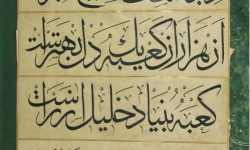 از هزاران کعبه یک دل بهترست
کعبه بنیاد خلیل آزرست